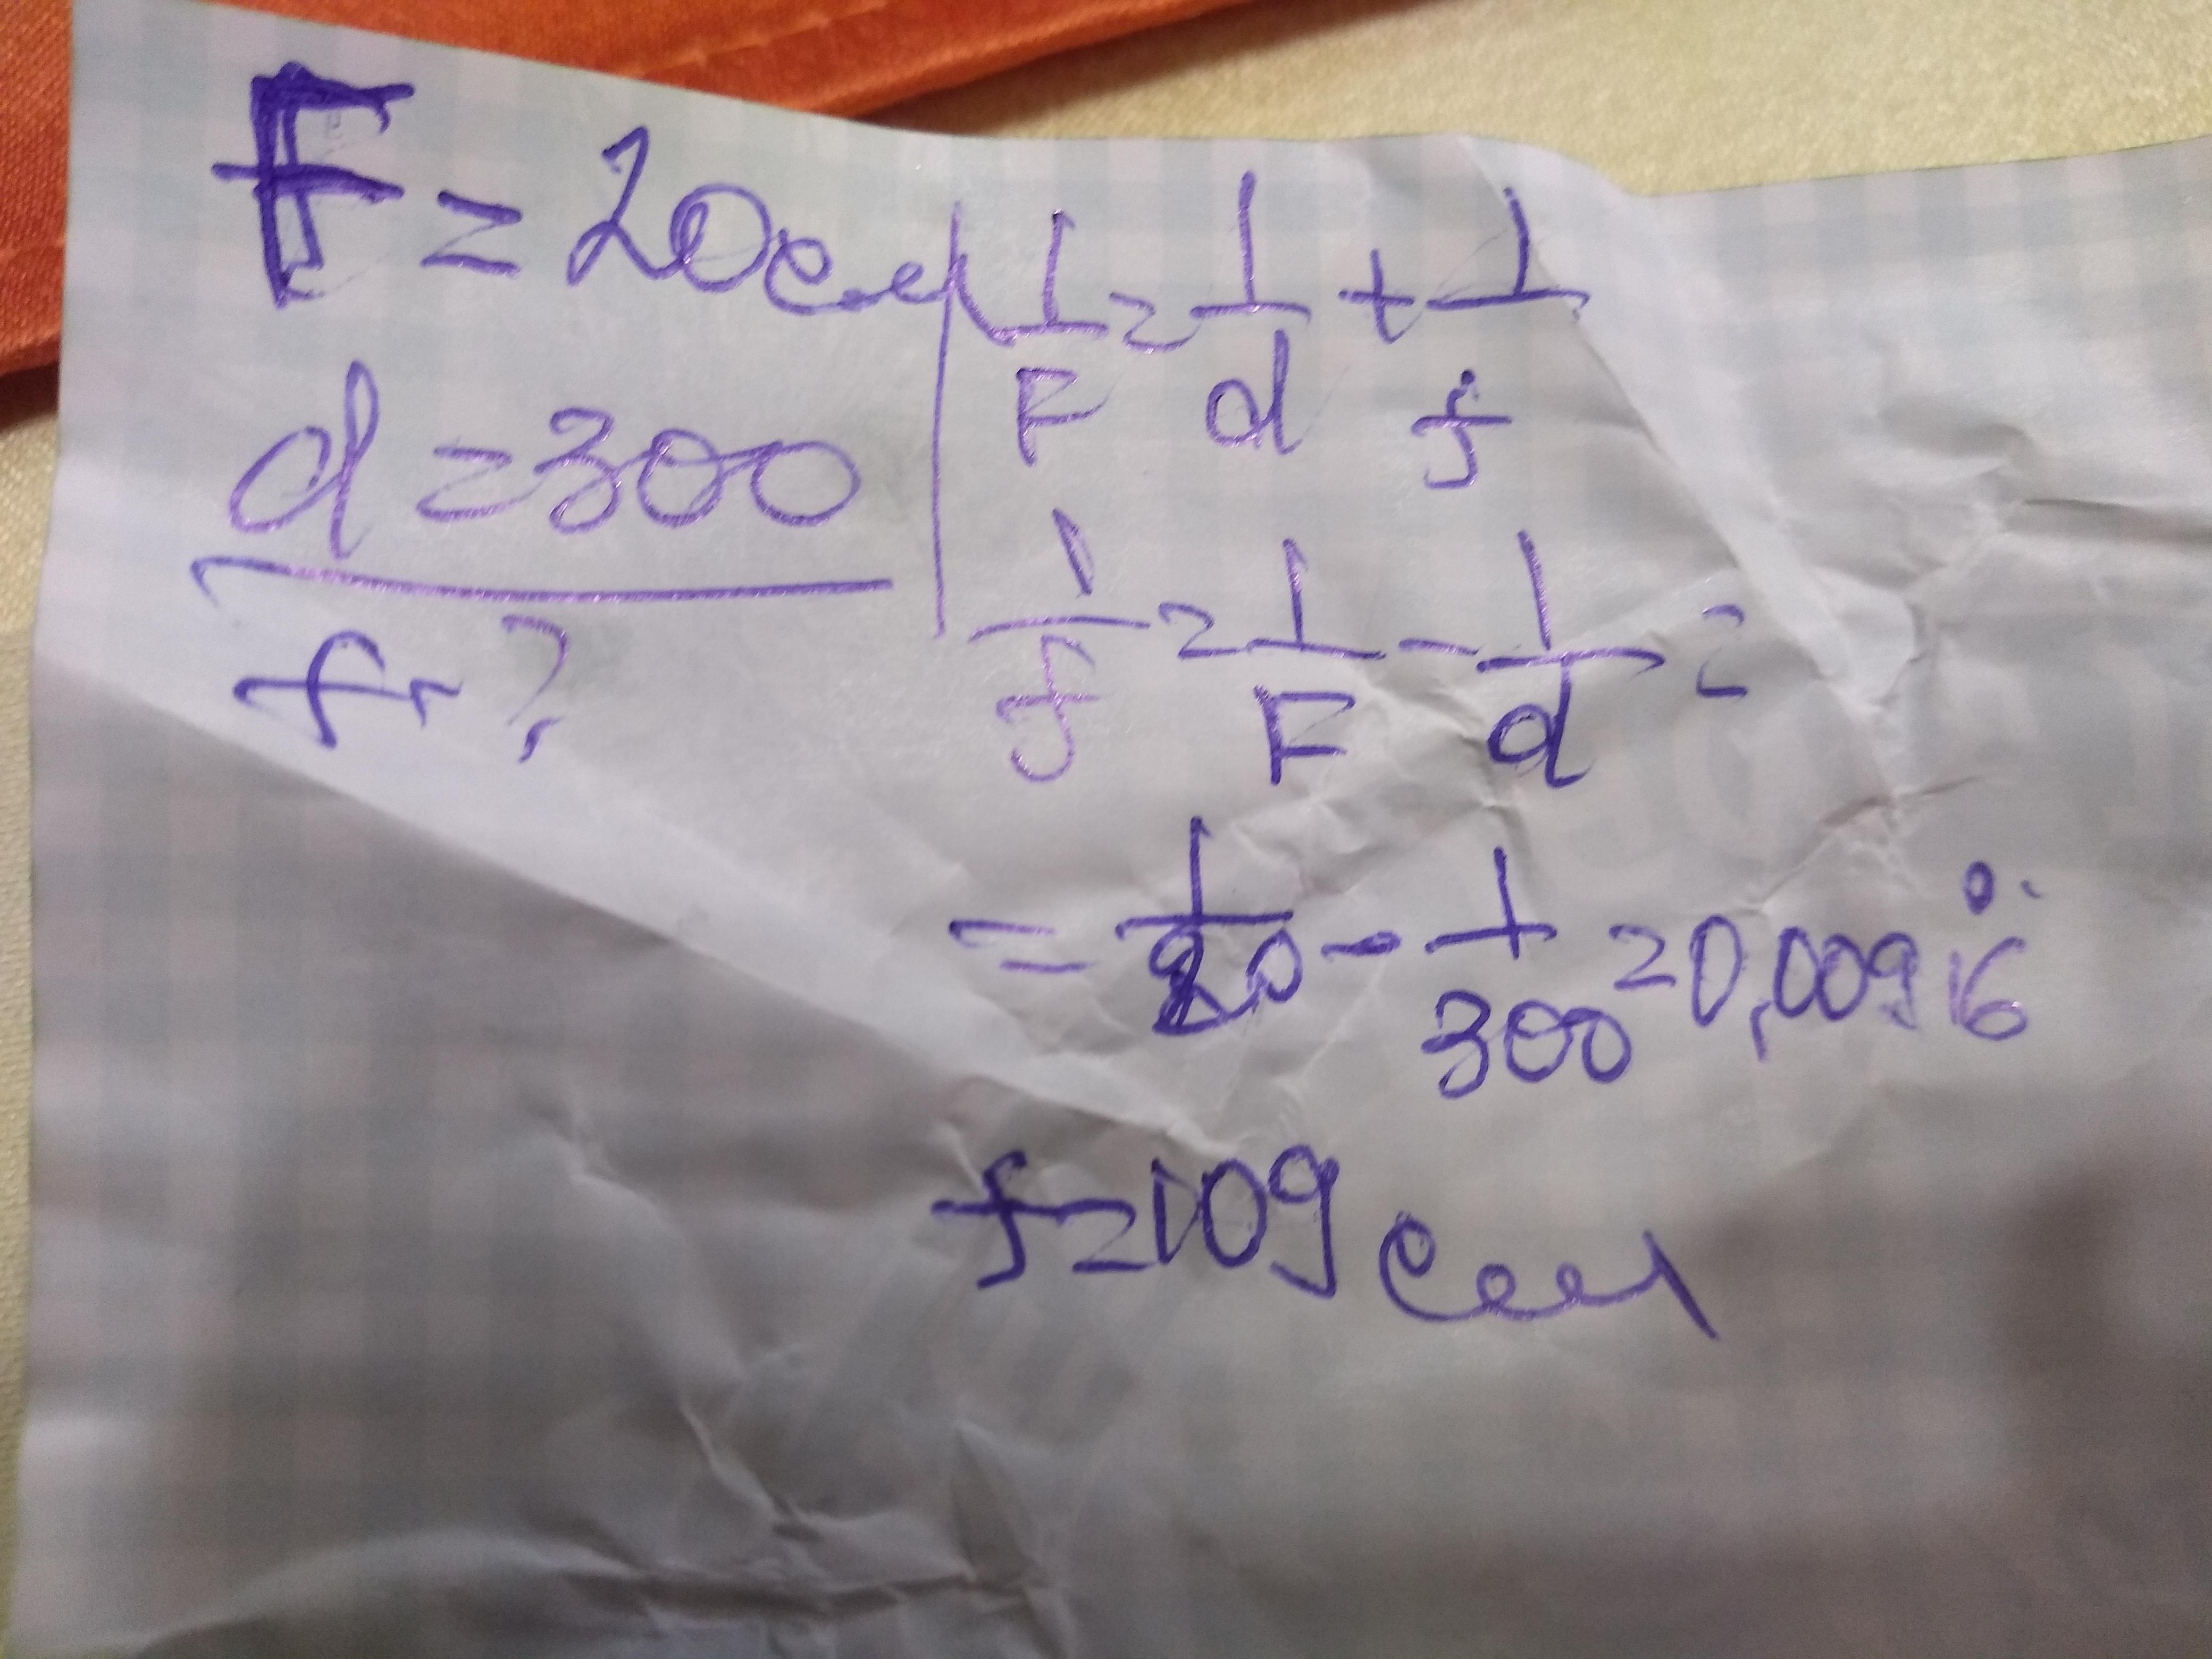 F = 20 см
d = 300
f - ?
1/F = 1/d + 1/f
1/f = 1/F - 1/d =
= 1/20 - 1/300 = 0,00916
f = 109 см